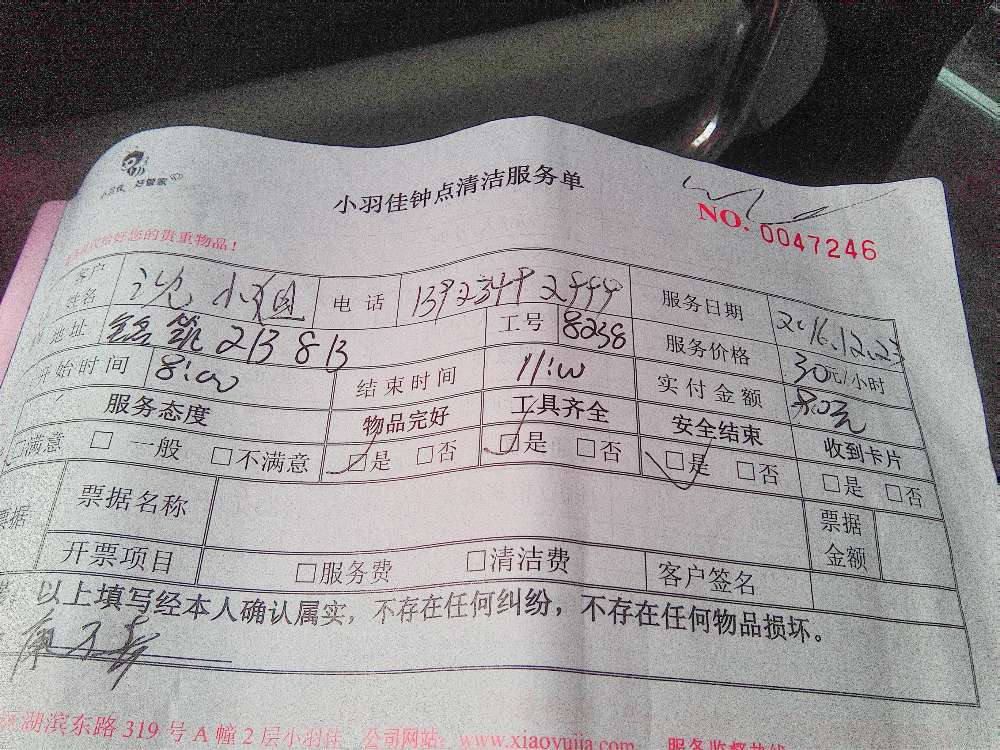 小羽佳 好管家
小羽佳钟点清洁服务单
NO. 0047246
好您的贵重物品！
客户姓名 电话 服务日期 2016.12.23
地址 213 8B 工号 8238 服务价格 30元/小时
开始时间 8:00 结束时间 11:00 实付金额
服务态度 物品完好 工具齐全 安全结束 收到卡片
□满意 □一般 □不满意 □是 □否 □是 □否 □是 □否 □是 □否
票据 票据名称 票据金额
开票项目 □服务费 □清洁费 客户签名
以上填写经本人确认属实，不存在任何纠纷，不存在任何物品损坏。
湖滨东路 319 号 A 幢 2 层小羽佳 公司网站：www.xiaoyujia.com 服务监督热线